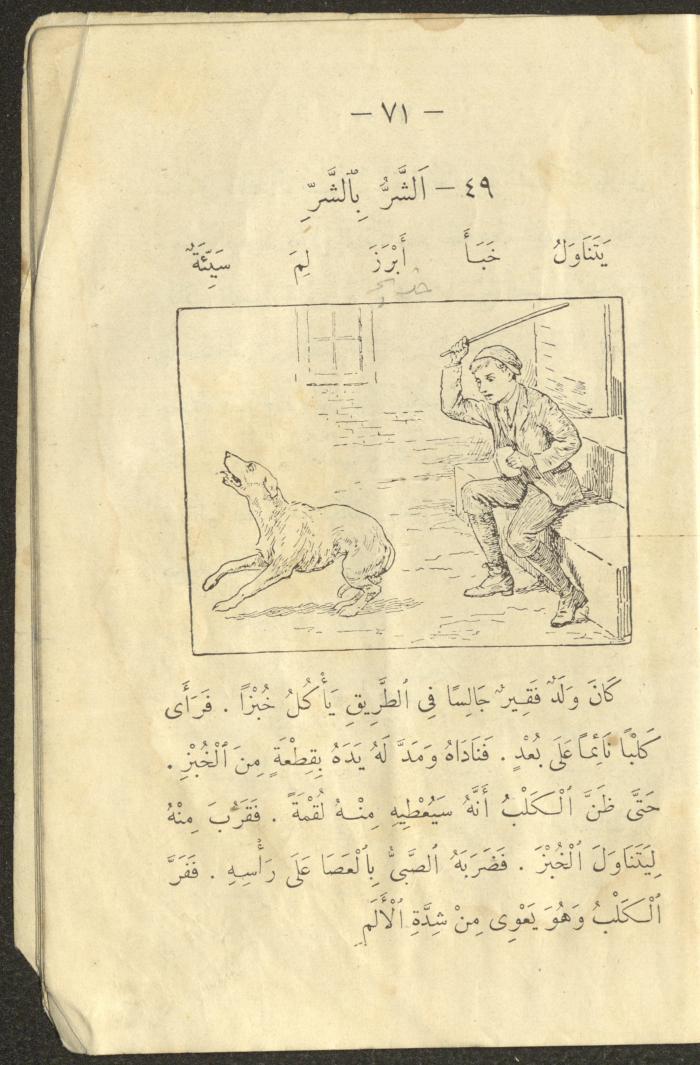 — ٧١ —
٤٩ — اَلشَّرُّ بِٱلشَّرِّ
يَتَنَاوَلُ خَبَأَ أَبْرَزَ لِمَ سَيِّئَةٌ
كَانَ وَلَدٌ فَقِيرٌ جَالِسًا فِي ٱلطَّرِيقِ يَأْكُلُ خُبْزًا . فَرَأَى
كَلْبًا نَائِمًا عَلَى بُعْدٍ . فَنَادَاهُ وَمَدَّ لَهُ يَدَهُ بِقِطْعَةٍ مِنَ ٱلْخُبْزِ .
حَتَّى ظَنَّ ٱلْكَلْبُ أَنَّهُ سَيُعْطِيهِ مِنْهُ لُقْمَةً . فَقَرُبَ مِنْهُ
لِيَتَنَاوَلَ ٱلْخُبْزَ . فَضَرَبَهُ ٱلصَّبِيُّ بِٱلْعَصَا عَلَى رَأْسِهِ . فَفَرَّ
ٱلْكَلْبُ وَهُوَ يَعْوِى مِنْ شِدَّةِ ٱلْأَلَمِ